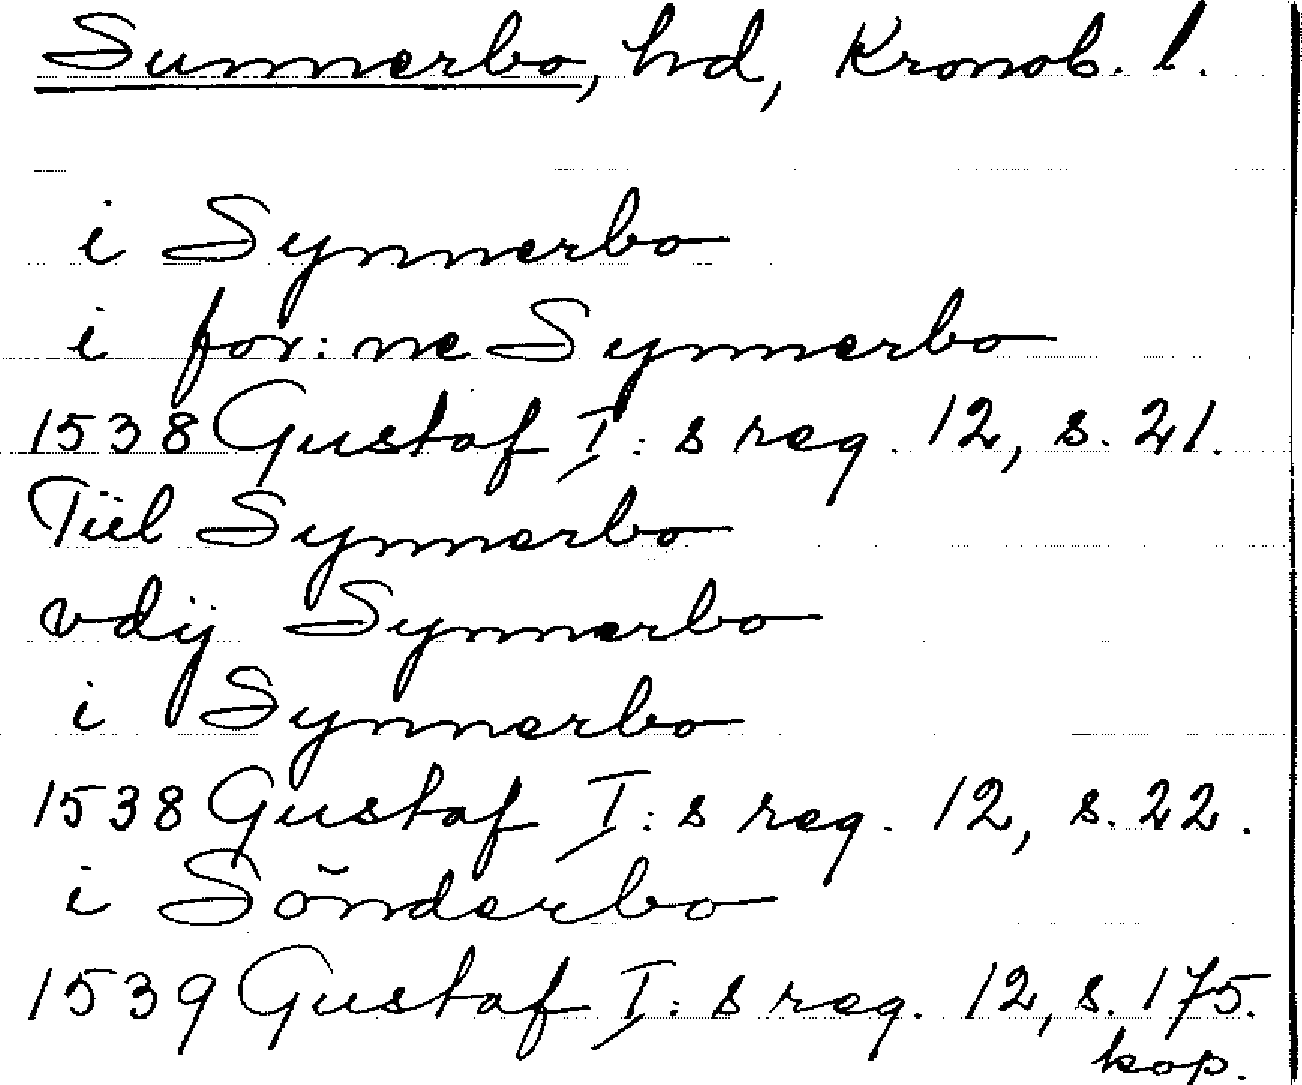 Sunnerbo, hd, Kronob. l.
i Synnerbo
i for: ne Synnerbo
1538 Gustaf I: s reg. 12, s. 21.
Tiil Synnerbo
vdij Synnerbo
i Synnerbo
1538 Gustaf I: s reg. 12, s. 22.
i Sönderbo
1539 Gustaf I: s reg. 12, s. 175.
kop.